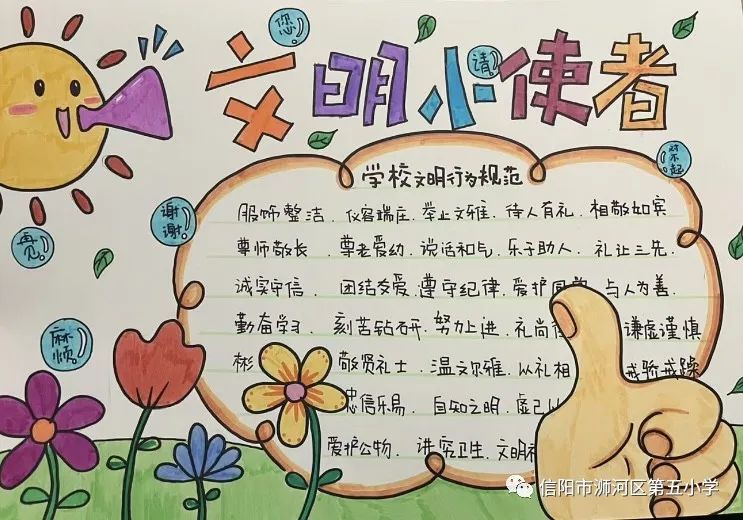 您!
文明小使者
请!
对不起
学校文明行为规范
谢谢!
服饰整洁、仪容端庄、举止文雅、待人有礼、相敬如宾
再见!
尊师敬长、尊老爱幼、说话和气、乐于助人、礼让三先、
诚实守信、团结友爱、遵守纪律、爱护 与人为善、
勤奋学习、刻苦钻研、努力上进、礼尚 谦虚谨慎
麻烦!
彬 敬贤礼士、温文尔雅、以礼相 戒骄戒躁
忠信乐易、自知之明、虚己
爱护公物、讲究卫生、文明
信阳市浉河区第五小学